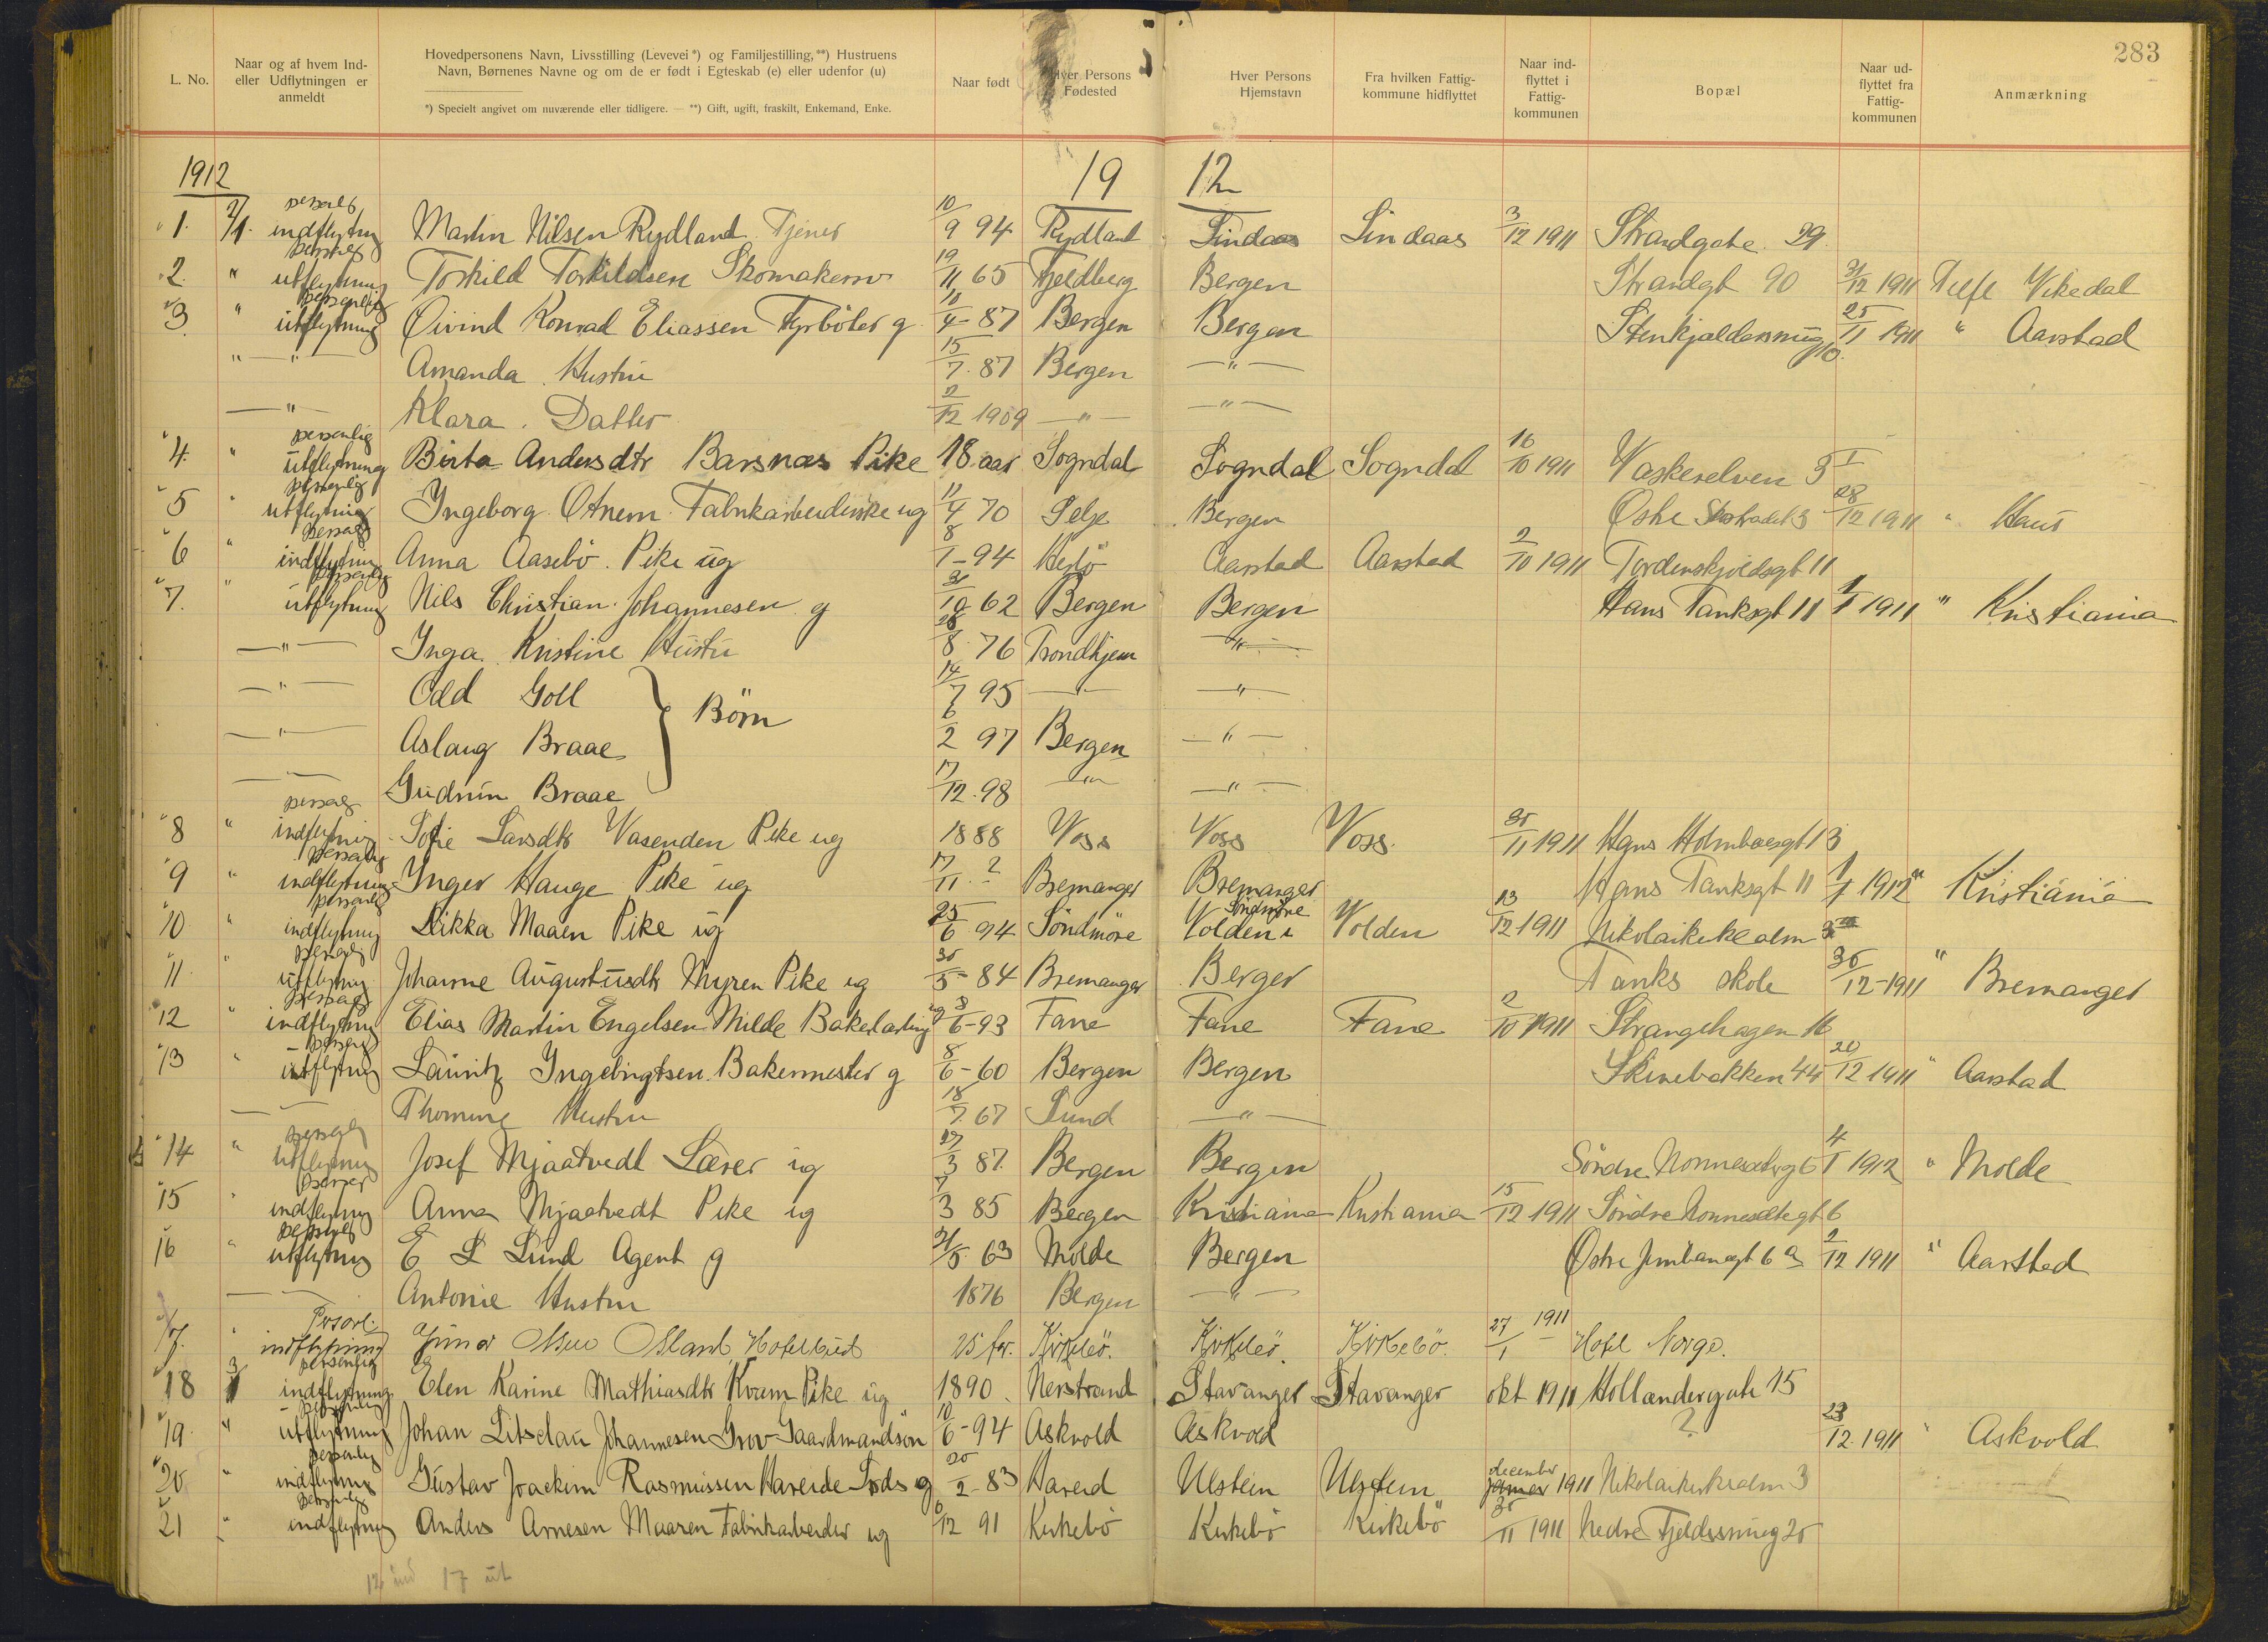 283
L. No.
Naar og af hvem Ind- eller Udflytningen er anmeldt
Hovedpersonens Navn, Livsstilling (Levevei *) og Familjestilling,**) Hustruens Navn, Børnenes Navne og om de er født i Egteskab (e) eller udenfor (u)
*) Specielt angivet om nuværende eller tidligere. — **) Gift, ugift, fraskilt, Enkemand, Enke.
Naar født
Hver Persons Fødested
Hver Persons Hjemstavn
Fra hvilken Fattig- kommune hidflyttet
Naar ind- flyttet i Fattig- kommunen
Bopæl
Naar ud- flyttet fra Fattig- kommunen
Anmærkning
1912 19 12
1. 2/1. indflytning Martin Nilsen Rydland Tjener 10/9 94 Rydland Lindaas Lindaas 3/12 1911 Strandgate 29
2. " utflytning Torkild Torkildsen 19/11 65 Fjeldberg Bergen Strandgt 90 31/12 1911 Vikedal
3. " personlig utflytning Øivind Konrad Eliassen Fyrböter g 10/4-87 Bergen Bergen Stenkjældersmug 10. 25/11 1911 " Aarstad
" — " — Amanda Hustru 15/7. 87 Bergen — " —
— " — Klara. Datter 2/12 1909 — " — — " —
4. " personlig utflytning Birta Andersdtr Barsnæs Pike 18 aar Sogndal Sogndal Sogndal 16/10 1911 Vaskerelven 3 I
5 " personlig utflytning Ingeborg Otnem Fabrikarbeiderske ug 11/4 70 Selje Bergen Østre 28/12 1911 " Haus
6 " indflytning Anna Aasebö. Pike ug 8/1-94 Herlö Aarstad Aarstad 2/10 1911 Tordenskjoldsgt 11
7. " personlig utflytning Nils Christian Johannesen g 31/10 62 Bergen Bergen Hans Tanksgt 11 1/1 1911 " Kristiania
— " — Inga Kristine Hustru 28/8 76 Trondhjem — " —
— " — Odd Goll } Börn 14/7 95 — " — — " —
— " — Aslaug Braae 6/2 97 Bergen — " —
— — Gudrun Braae 17/12. 98 — " — — " —
8 " indflytning Sofie Larsdtr Vasenden Pike ug 1888 Voss Voss Voss. 30/11 1911 Hans Holmboesgt 13
9 " indflytning Inger Hauge Pike ug 17/11 ? Bremanger Bremanger Hans Tanksgt 11 1/1 1912 " Kristiania
10 " indflytning Rikka Maaen Pike ug 25/6 94 Söndmöre Volden i Söndmöre Volden 13/12 1911 Nikolaikirkealm 3
11 " utflytning Johanne Augustusdtr Myren Pike ug 30/5-84 Bremanger Bergen Tanks skole 30/12-1911 " Bremanger
12 " indflytning Elias Martin Engelsen Milde Bakerlærling ug 3/6-93 Fane Fane Fane 2/10 1911 Strangehagen 16
13 " utflytning Lauritz Ingebrigtsen Bakermester g 8/6-60 Bergen Bergen Skivebakken 44 20/12 1911 " Aarstad
— — Thomine Hustru 18/7. 67 Lund — " —
14 " utflytning Josef Mjaatvedt Lærer ug 27/3 87. Bergen Bergen Söndre 4/1 1912 " Molde
15 " indflytning Anna Mjaatvedt Pike ug 7/3 85 Bergen Kristiania Kristiania 15/12 1911 Söndre 6
16 " utflytning E L Lund Agent g 31/5. 63 Molde Bergen Østre Jernbanegt 6 a 2/12 1911 " Aarstad
— — Antonie Hustru 1876 Bergen — " —
17. " indflytning Hotelbud 25 Kirkebö. Kirkebö. Kirkebö. 27/1 1911 Hotel Norge.
18 3/1 personlig indflytning Elen Karine Mathiasdtr Kvam Pike ug 1890. Nerstrand Stavanger Stavanger okt 1911 Hollændergate 15
19. " personlig utflytning Johan Johannesen Grov Gaardmandsön 10/6-94 Askvold Askvold ? 23/12. 1911 " Askvold
20 " personlig indflytning Gustav Joackim Rasmussen Hareide g 20/2-83 Hareid Ulstein Ulstein december 1911 Nikolaikirkealm 3
21 " personlig indflytning Anders Arnesen Maaren Fabrikarbeider ug 6/12 91 Kirkebö Kirkebö Kirkebö 30/11 1911 Nedre Fjeldsmug 25
12 ind 17 ut